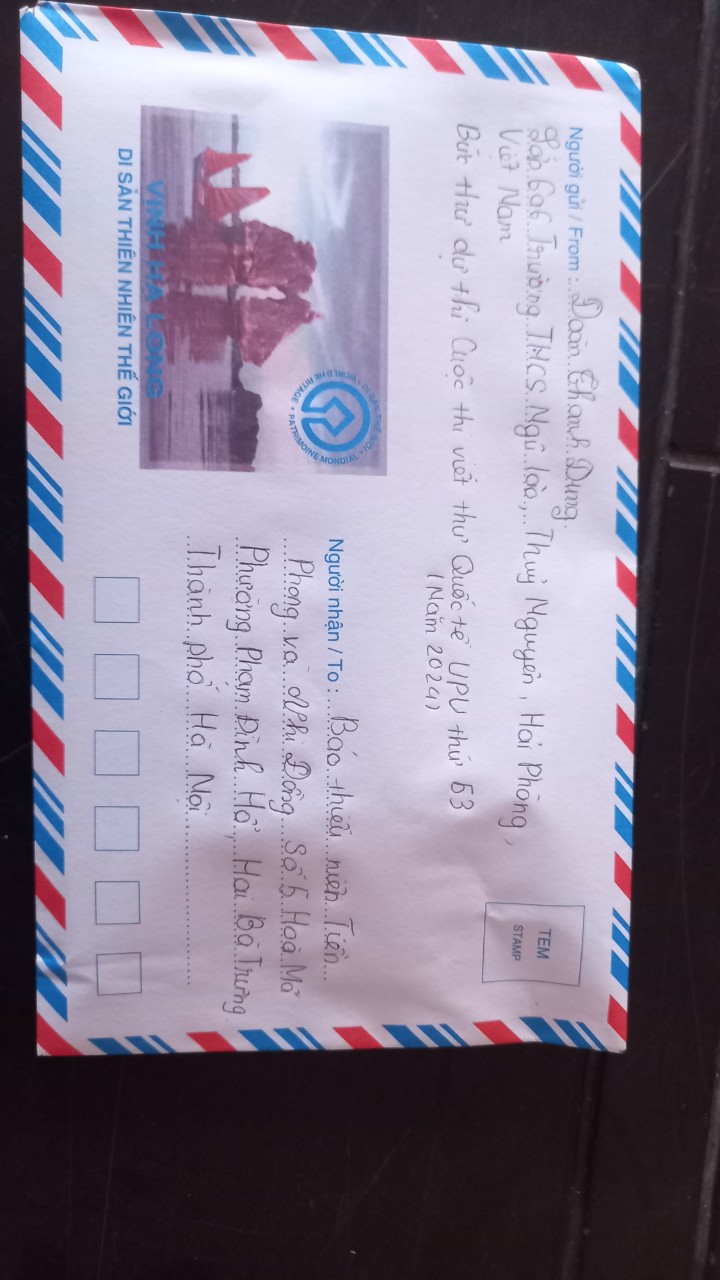 Người gửi / From : Doàn Thanh Dung.
Lớp 6a6 Trường THCS Ngũ lão, Thuỷ Nguyên, Hải Phòng,
Việt Nam
Bức thư dự thi Cuộc thi viết thư Quốc tế UPU thứ 53
(Năm 2024)
TEM
STAMP
WORLD HERITAGE • PATRIMOINE MONDIAL •
VỊNH HẠ LONG
DI SẢN THIÊN NHIÊN THẾ GIỚI
Người nhận / To : Báo thiếu niên Tiền
Phong và Nhi Đồng số 5 Hoà Mã
Phường Phạm Đình Hổ, Hai Bà Trưng
Thành phố Hà Nội